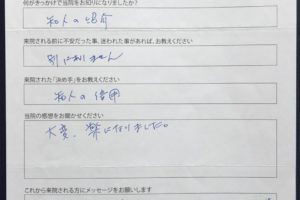 何がきっかけで当院をお知りになりましたか?
知人の紹介
来院される前に不安だった事、迷われた事があれば、お教えください
別にありません
来院された「決め手」をお教えください
知人の信用
当院の感想をお聞かせください
大変、楽になりました。
これから来院される方にメッセージをお願いします